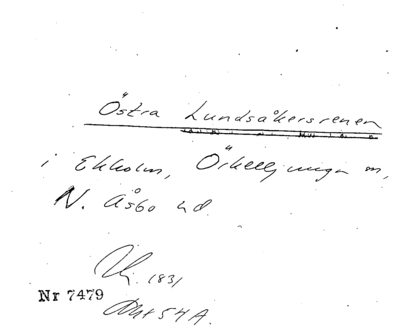 Östra Lundsåkersrenen
i Ekholm, Örkelljunga sn,
N. Åsbo hd.
1831
Nr 7479